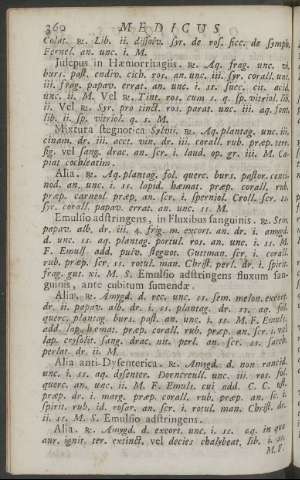 360 MEDICUS
Colat. &. Lib. ii. dissolv. syr. de ros. sicc. de symph.
Fernel. an. unc. i. M.
Julepus in Hæmorrhagiis. &. Aq. frag. unc. vi.
burs. past. endiv. cich. ros. an. unc. iii. syr. corall. unc.
iii. frag. papav. errat. an. unc. i. ss. succ. cit. acid.
unc. ii. M. Vel &. Tint. ros. cum s. q. sp. vitriol. lib.
ii. Vel &. Syr. pro tinct. ros. parat. unc. iii. aq. font.
lib. ii. sp. vitriol. q. s. M.
Mixtura stegnotica Sylvii. &. Aq. plantag. unc. iii.
cinam. dr. iii. acet. vin. dr. iii. corall. rub. præp. terr.
sig. vel sang. drac. an. scr. i. laud. op. gr. iii. M. Ca-
piat cochleatim.
Alia. &. Aq. plantag. fol. querc. burs. pastor. centi-
nod. an. unc. i. ss. lapid. hæmat. præp. corall. rub.
præp. carneol præp. an. scr. i. sperniol. Croll. scr. ss.
syr. corall. papav. errat. an. unc. ss. M.
Emulsio adstringens, in Fluxibus sanguinis. &. Sem.
papav. alb. dr. iii. 4. frig. m. excort. an. dr. i. amygd.
d. unc. ss. aq. plantag. portul. ros. an. unc. i. ss. M.
F. Emuls. add. pulv. stegnot. Gustman. scr. i. corall.
rub. præp. scr. ss. rotul. man. Christ. perl. dr. i. spirit.
frag. gut. xi. M. S. Emulsio adstringens fluxum san-
guinis, ante cubitum sumendæ.
Alia. &. Amygd. d. rec. unc. ss. sem. melon. excort.
dr. ii. papav. alb. dr. i. ss. plantag. dr. ss. aq. fol.
querc. plantag. burs. past. an. unc. i. ss. M. F. Emuls.
add. lap. hæmat. præp. corall. rub. præp. an. scr. i. vel
lap. crysolit. sang. drac. nit. perl. an. scr. ss. sacch.
perlat. dr. ii. M.
Alia anti-Dysenterica. &. Amygd. d. non rancid.
unc. i. ss. aq. dysenter. Dorncreilii, unc. iii. ros. fol.
querc. an. unc. ii. M. F. Emuls. cui add. C. C. ust.
præp. dr. i. marg. præp. corall. rub. præp. an. scr. i.
spirit. rub. id. rosar. an. scr. i. rotul. man. Christ. dr.
ii. ss. M. S. Emulsio adstringens.
Alia. &. Amygd. d. excort. unc. i. ss. aq. in qua
aur. ignit. ter. extinct. vel decies chalybeat. lib. i. ss.
M. F.